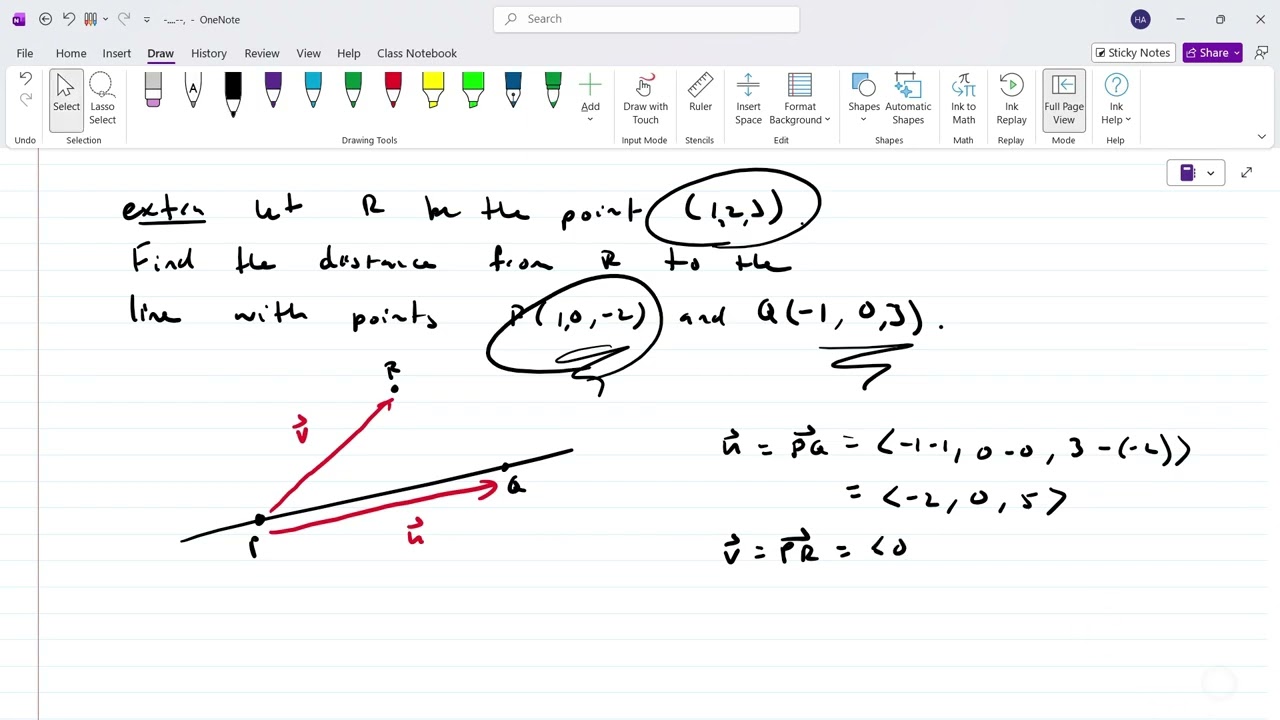 -....--, - OneNote
Search
HA
File Home Insert Draw History Review View Help Class Notebook
Sticky Notes Share
Select Lasso Select Add Draw with Touch Ruler Insert Space Format Background Shapes Automatic Shapes Ink to Math Ink Replay Full Page View Ink Help
Undo Selection Drawing Tools Input Mode Stencils Edit Shapes Math Replay Mode Help
extra let R be the point (1,2,3).
Find the distance from R to the
line with points P(1,0,-2) and Q(-1, 0,3).
R
v⃗
Q
u⃗
P
u⃗ = PQ⃗ = <-1-1, 0-0, 3-(-2)>
= <-2, 0, 5>
v⃗ = PR⃗ = <0